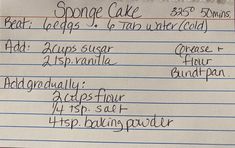 Sponge Cake 325° 50 mins.
Beat: 6 eggs 6 Tab water (cold)
Add: 2 cups sugar Grease +
2 tsp. vanilla flour
Bundt pan
Add gradually:
2 cups flour
1/4 tsp. salt
4 tsp. baking powder